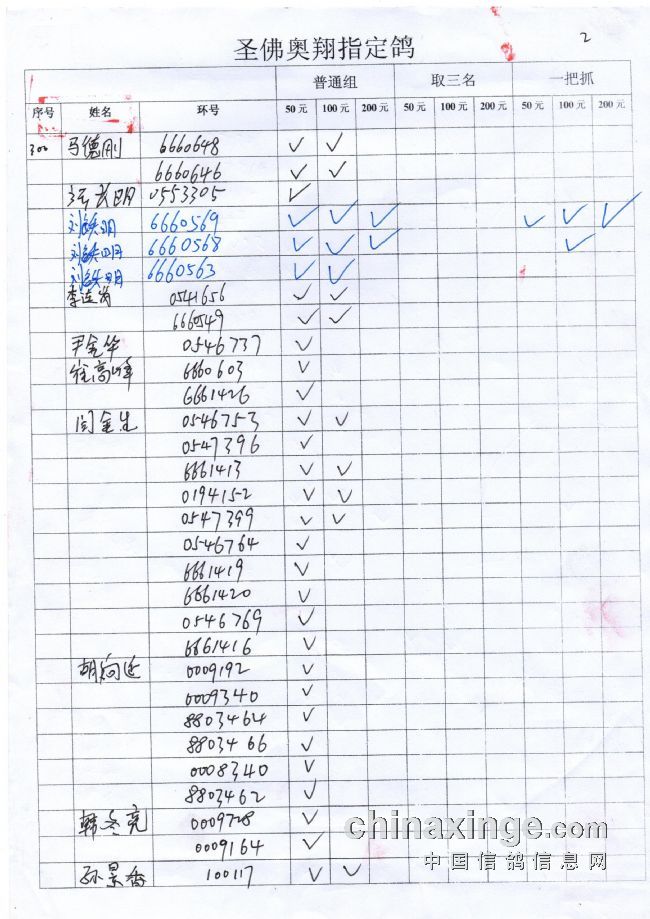 圣佛奥翔指定鸽
2
普通组 取三名 一把抓
序号 姓名 环号 50元 100元 200元 50元 100元 200元 50元 100元 200元
300 马德刚 6660648 ✓ ✓
6660646 ✓ ✓
长明 0553305 ✓
刘铁明 6660569 ✓ ✓ ✓ ✓ ✓ ✓
刘铁明 6660568 ✓ ✓ ✓ ✓
刘铁明 6660563 ✓ ✓
李连岗 0541656 ✓ ✓
6660549 ✓ ✓
尹金华 0546737 ✓
徐高峰 6660603 ✓
6661426 ✓
闫金生 0546753 ✓ ✓
0547396 ✓
6661413 ✓ ✓
0194152 ✓ ✓
0547399 ✓ ✓
0546764 ✓
6661419 ✓
6661420 ✓
0546769 ✓
6661416 ✓
胡向廷 0009192 ✓
0009340 ✓
8803464 ✓
8803466 ✓
0008340 ✓
8803462 ✓
韩冬亮 0009728 ✓
0009164 ✓
孙景香 100117 ✓ ✓
chinaxinge.com
中国信鸽信息网